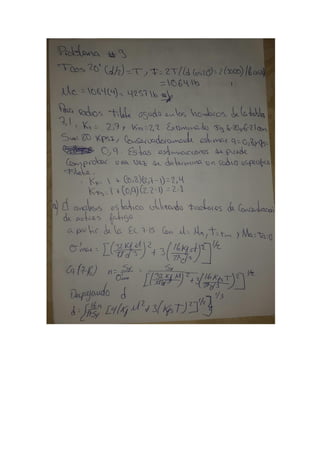 Problema # 3
F cos 20° (d/2) = T , F = 2T/(d cos 20) = 2(3000)/(6 cos 20)
= 1064 lb
Mc = 1064(4) = 4257 lb
Para radios filete agudo en los hombros de la tabla
7.1, Kt = 2,7, Kts = 2.2 Estimando
Sut = 80 Kpsi, Conservadoramente estimar q = 0,8
0,9. Estas estimaciones se puede
comprobar una vez se determina un radio especifico
filete.
Kf = 1 + (0,8)(2,7-1) = 2,4
Kfs = 1 + (0,9)(2.2-1) = 2.1
a) el analisis estatico utilizando factores de Concentracion
de fatiga
a partir de la Ec 7-15 con M = Ma, T = Tm, Mm = Ta = 0
σ'max = [(32 Kf M / πd³)² + 3(16 Kfs T / πd³)²]^1/2
n = Sy / σ'max = Sy / [(32 Kf M / πd³)² + 3(16 Kfs T / πd³)²]^1/2
Despejando d
d = {16n / πSy [4(Kf M)² + 3(Kfs T)²]^1/2}^1/3